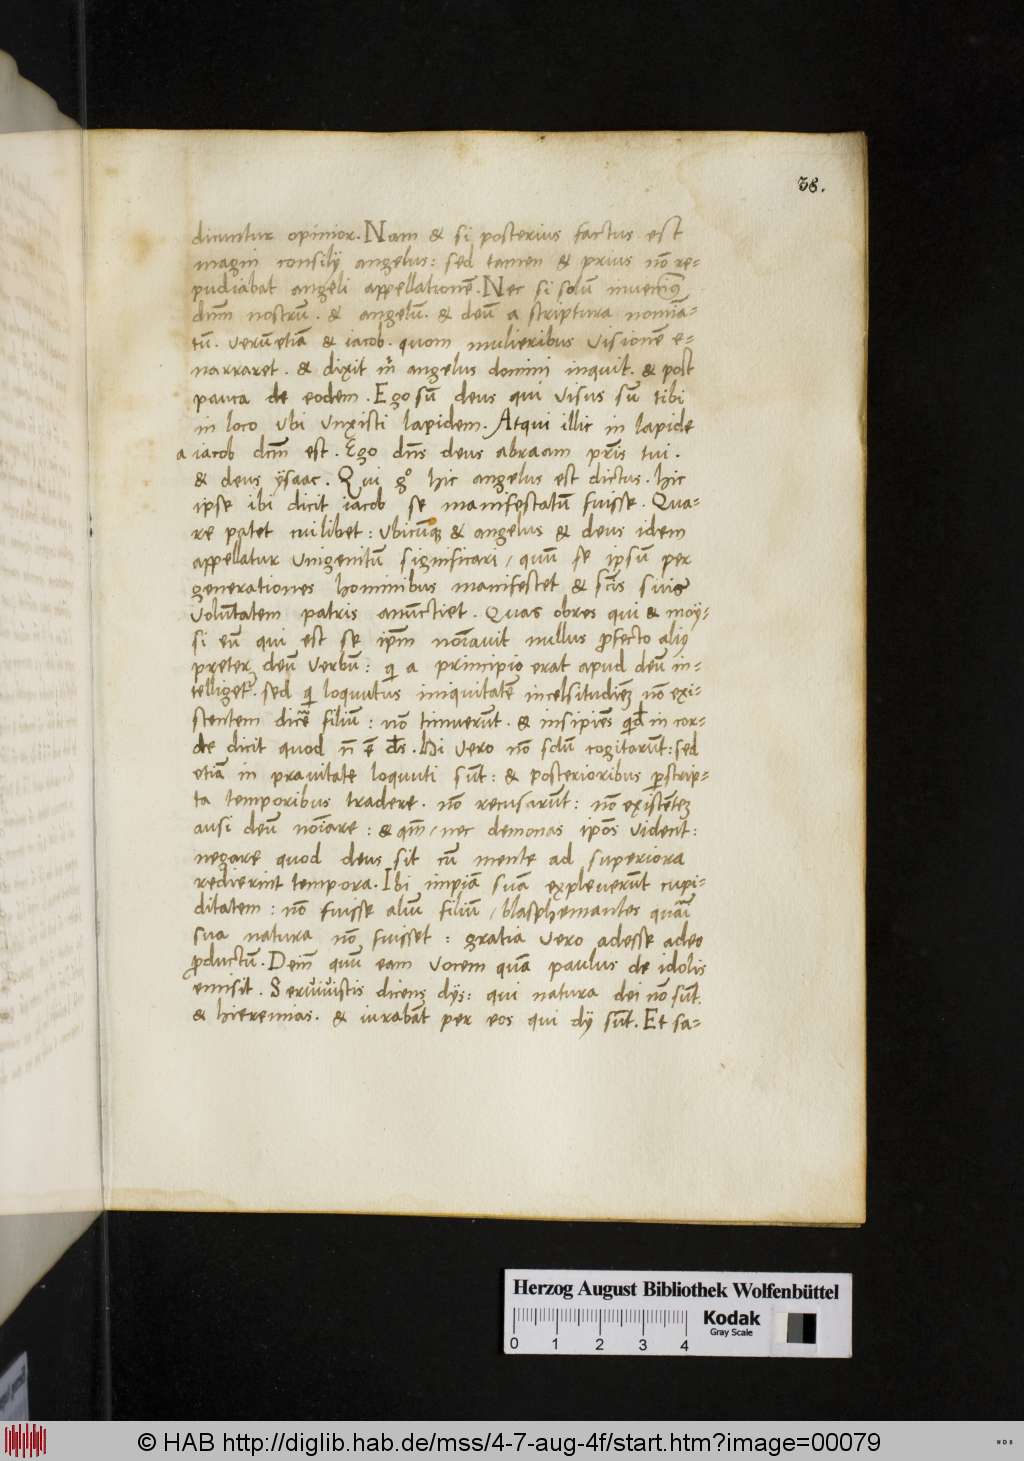 38.
dicuntur opinior. Nam & si posterius factus est
magni consilij angelus: sed tamen & prius nō re-
pudiabat angeli appellationē. Nec si solū invenimꝰ
dn̄m nostrū. & angelū. & deū a scriptura nomīa-
tū. verūetiā & iacob. quom mulieribus visionē e-
narraret. & dixit m̄ angelus domini inquit. & post
pauca de eodem. Ego sū deus qui visus sū tibi
in loco ubi unxisti lapidem. Atqui illic in lapide
a iacob dcm̄ est. Ego dn̄s deus abraam pr̄is tui.
& deus ysaac. Qui gº hic angelus est dictus. hic
ipse ibi dicit iacob se manifestatū fuisse. Qua-
re patet cuilibet: ubicūqꝫ & angelus & deus idem
appellatur unigenitū significari, quū se ipsū per
generationes hominibus manifestet & scīs suis
voluntatem patris anūctiet. Quas obres qui & moy-
si eū qui est se ip̄m noīavit nullus ꝓfecto aliū
preter deū verbū: qi a principio erat apud deū in-
telliget. sed qi loquutus iniquitatē in celsitudinē nō exi-
stentem dicē filiū: nō timuerūt. & insipiēs qd in cor-
de dicit quod n̄ ē ds̄. Hi vero nō solū cogitarūt: sed
etiā in pravitate loquuti sūt: & posterioribus ꝑscrip-
ta temporibus tradere. nō recusarūt: nō existētē
ausi deū noīare: & qm̄, nec demonas ipōs vident:
negare quod deus sit cū mente ad superiora
redierint tempora. Ibi impiā suā expleverūt cupi-
ditatem: nō fuisse aliū filiū, blasphemantes quāvi
sua natura nō fuisset: gratia vero adesse adeo
ꝓductū. Dein̄ quū eam vocem quā paulus de idolis
emisit. Servivistis dicens dijs: qui natura dei nō sūt.
& hieremias. & iurabāt per eos qui dij sūt. Et sa-
Herzog August Bibliothek Wolfenbüttel
Kodak
Gray Scale
0 1 2 3 4
© HAB http://diglib.hab.de/mss/4-7-aug-4f/start.htm?image=00079